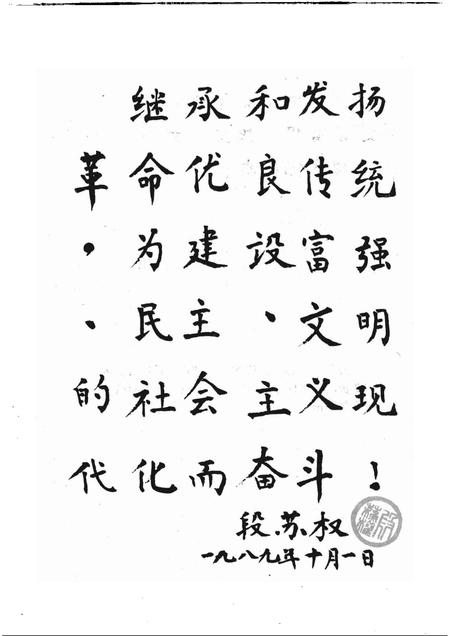 继承和发扬
革命优良传统
，为建设富强
、民主、文明
的社会主义现
代化而奋斗！
段苏权
一九八九年十月一日